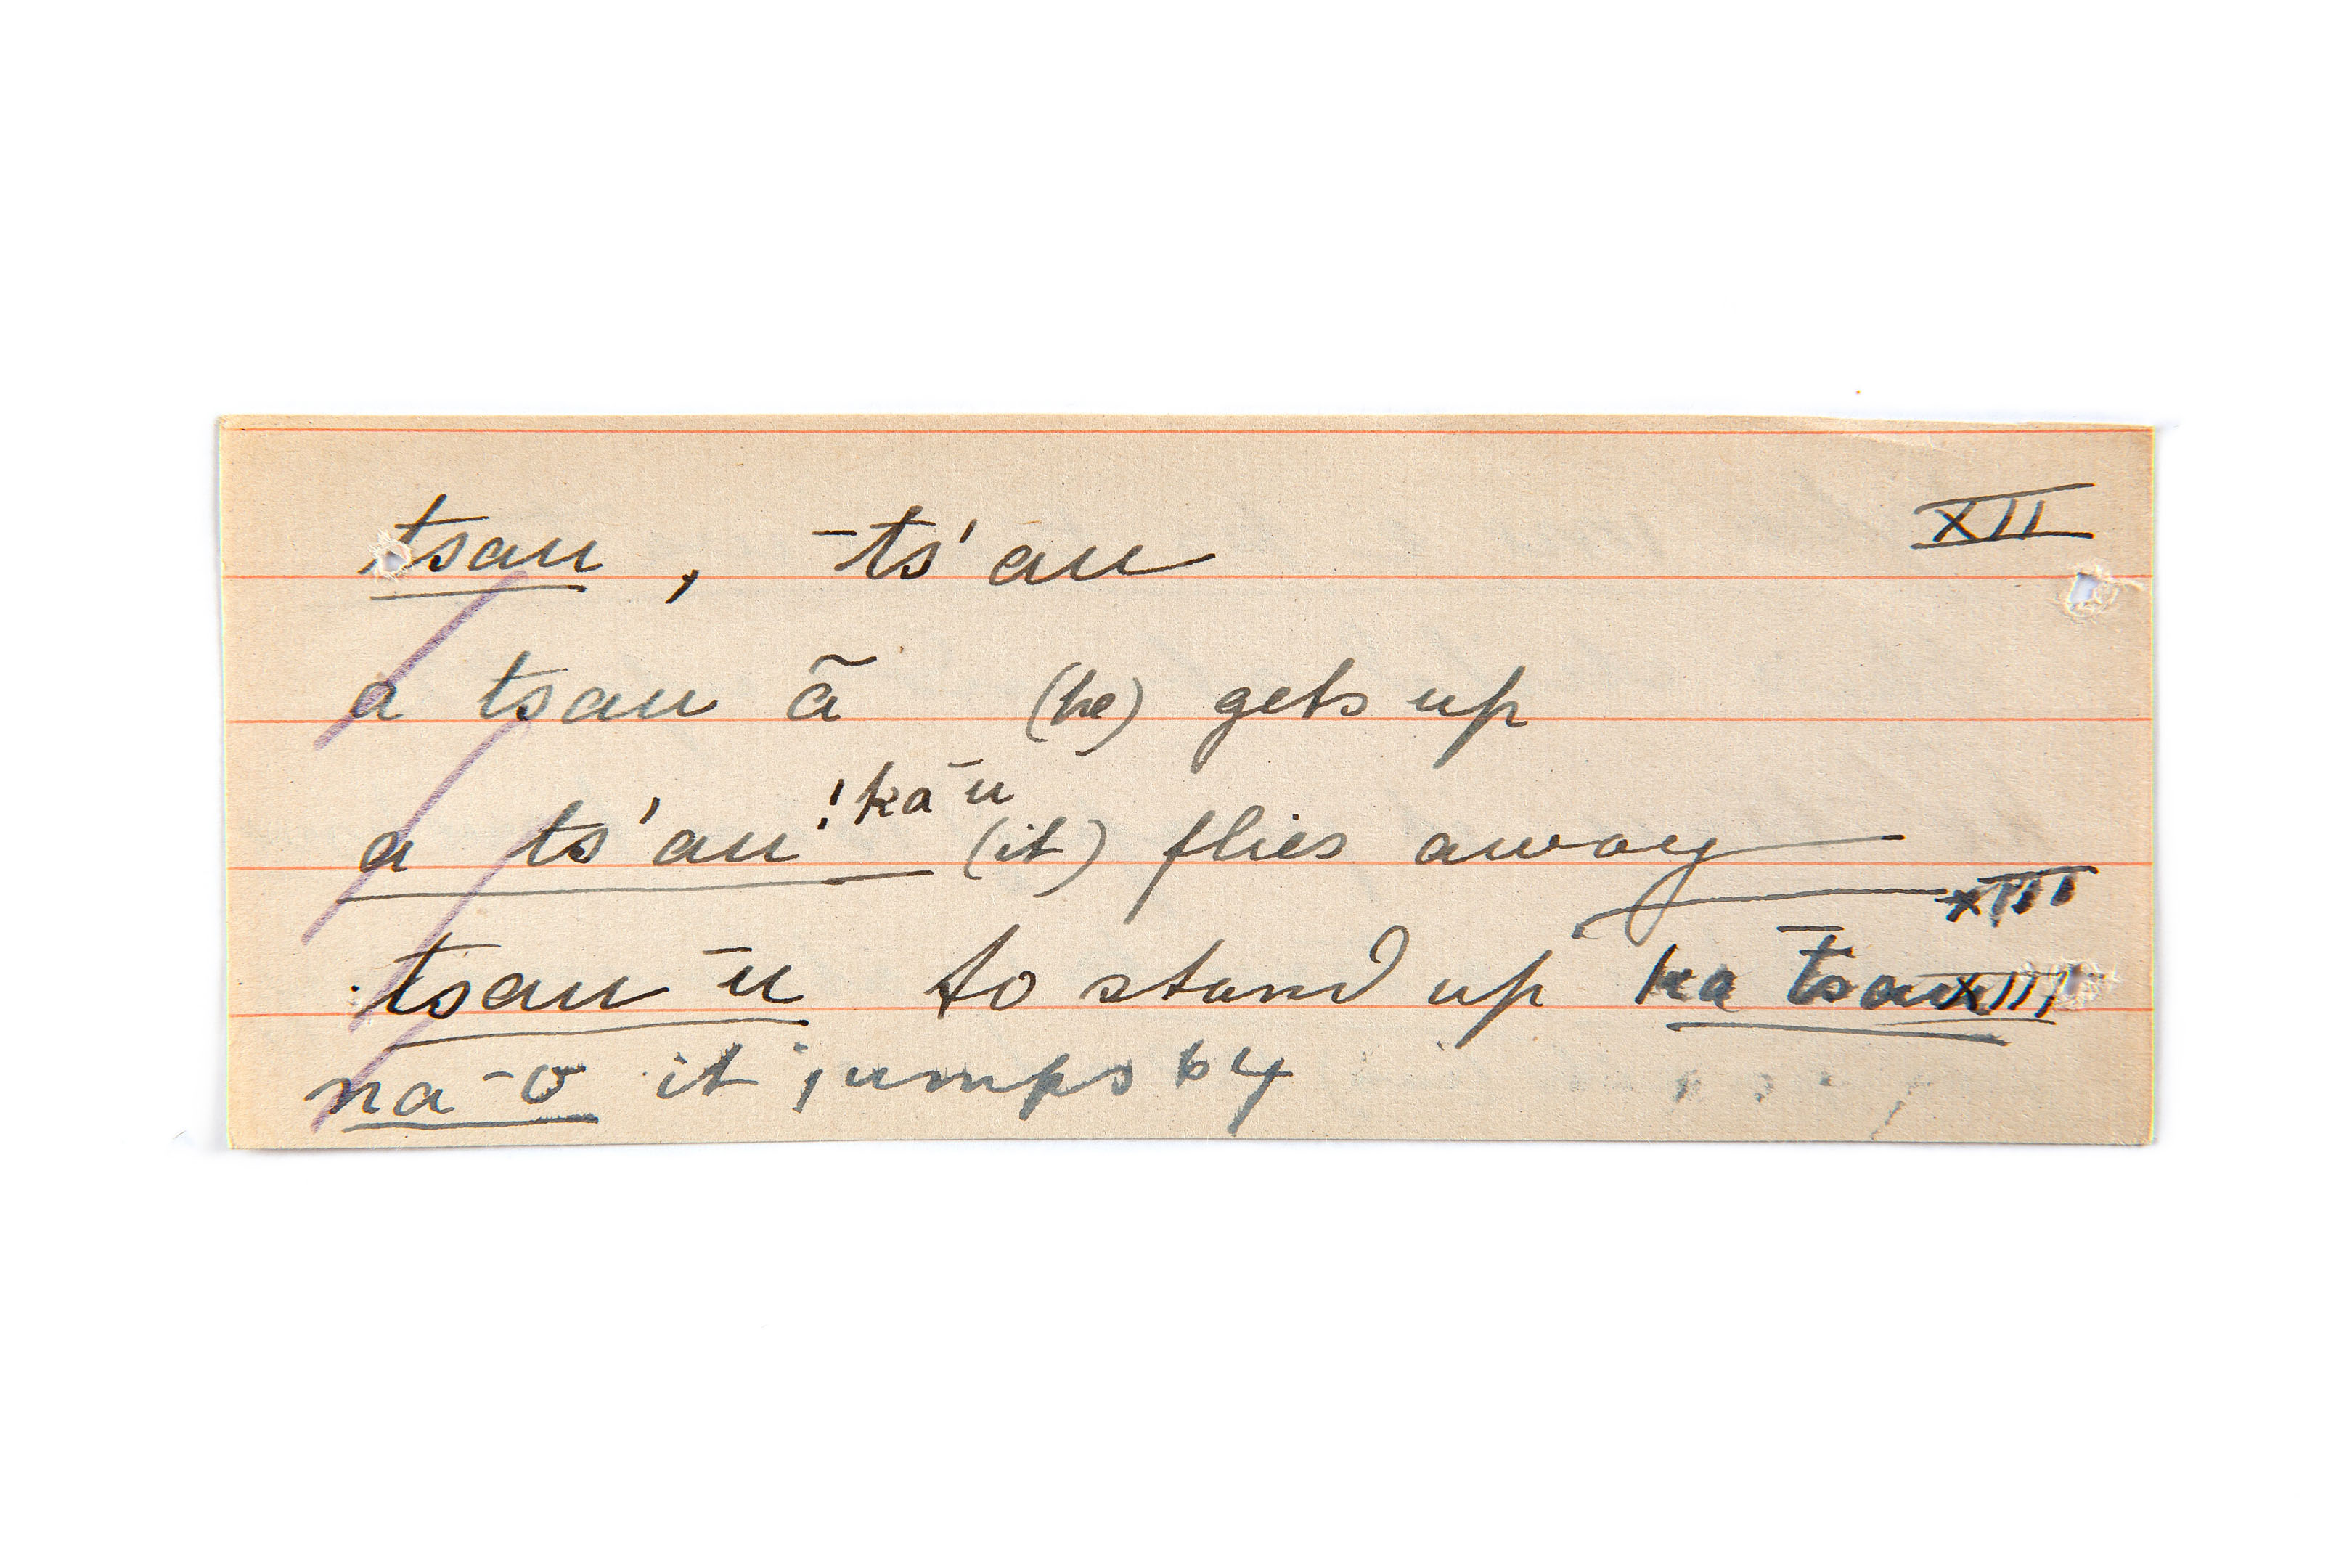 tsau, ¯ts'au XII
a tsau ã (he) gets up
a ts'au !ka ¯u (it) flies away
XIII
tsau ¯u to stand up ka ¯tsau XIII
na ¯o it jumps 64